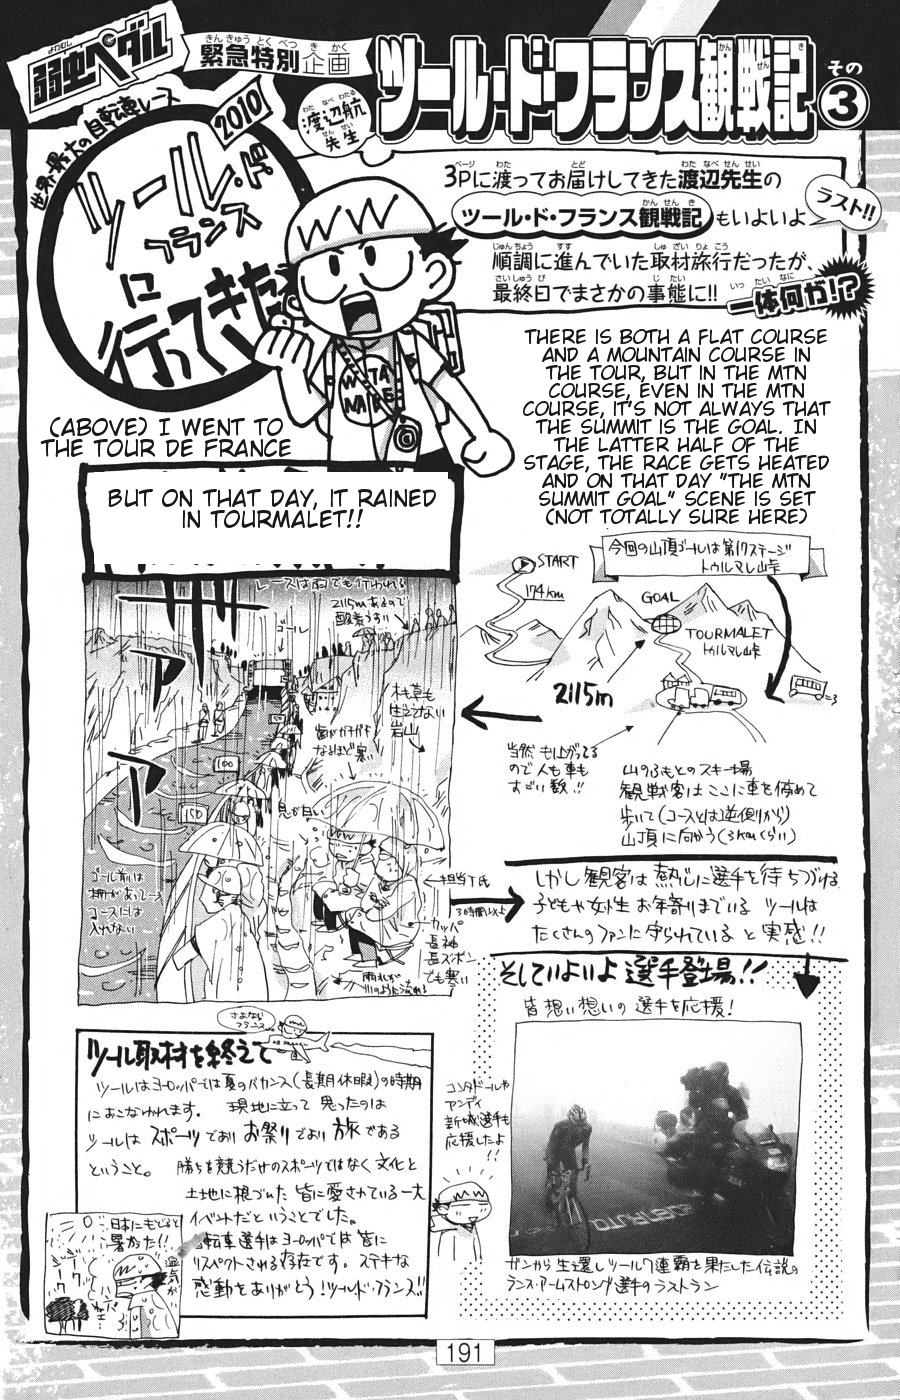 弱虫ペダル
緊急特別企画
渡辺航
先生
ツール・ド・フランス観戦記
その
3
世界最大の自転車レース
2010
ツール・ド
フランス
に
行ってきた
3Pに渡ってお届けしてきた渡辺先生の
ツール・ド・フランス観戦記もいよいよ
ラスト!!
順調に進んでいた取材旅行だったが、
最終日でまさかの事態に!!
一体何が!?
(ABOVE) I WENT TO
THE TOUR DE FRANCE
THERE IS BOTH A FLAT COURSE
AND A MOUNTAIN COURSE IN
THE TOUR, BUT IN THE MTN
COURSE, EVEN IN THE MTN
COURSE, IT'S NOT ALWAYS THAT
THE SUMMIT IS THE GOAL. IN
THE LATTER HALF OF THE
STAGE, THE RACE GETS HEATED
AND ON THAT DAY "THE MTN
SUMMIT GOAL" SCENE IS SET
(NOT TOTALLY SURE HERE)
BUT ON THAT DAY, IT RAINED
IN TOURMALET!!
今回の山頂ゴールは第17ステージ
トゥルマレ山峠
START
174km
GOAL
TOURMALET
トゥルマレ山峠
2115m
当然 も上がってる
ので人も車も
すごい数!!
山のふもとのスキー場
観戦客はここに車を停めて
歩いて(コースとは逆側から)
山頂に向かう(3kmくらい)
レースは雨でも行われる
2115mあるので
酸素うすい
ゴール
ザァァァ
木も草も
生えてない
岩山
歯がガチガチ
なるほど寒い
100
150
息が白い
ゴール前は
柵があって
コースには
入れない
担当T氏
3時間以上
カッパ
長袖
長ズボン
でも寒い
雨水が
川のように流れる
しかし観客は熱心に選手を待ちつづける
子どもや女性 お年寄りまでいる ツールは
たくさんのファンに守られている と実感!!
そしていよいよ選手登場!!
皆想い想いの選手を応援!
コンタドールや
アンディ
新城選手も
応援したよ
ガンから生還しツール7連覇を果たした伝説の
ランス・アームストロング選手のラストラン
さよなら
フランス
ツール取材を終えて
ツールはヨーロッパでは夏のバカンス(長期休暇)の時期
におこなわれます。 現地に立って思ったのは
ツールはスポーツであり お祭りであり 旅である
ということ。 勝ちを競うだけのスポーツではなく文化と
土地に根づいた 皆に愛されている一大
イベントだということでした。
自転車選手はヨーロッパでは皆に
リスペクトされる存在です。ステキな
感動をありがとう!ツール・ド・フランス!!
日本にもどると
暑かった!!
湿気が
191